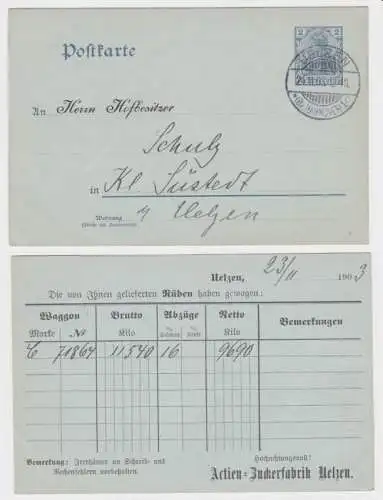 Postkarte
2
UELZEN
An Herrn Hofbesitzer
Schulz
in Kl. Süstedt
b/ Uelzen
Wohnung
Uelzen, 23/11 1903
Die von Ihnen gelieferten Rüben haben gewogen:
Waggon Brutto Abzüge Netto Bemerkungen
Marke No Kilo % % Kilo
C 71864 11540 16 9690
Bemerkung: Irrthümer an Schreib- und
Rechenfehlern vorbehalten.
Hochachtungsvoll!
Actien-Zuckerfabrik Uelzen.